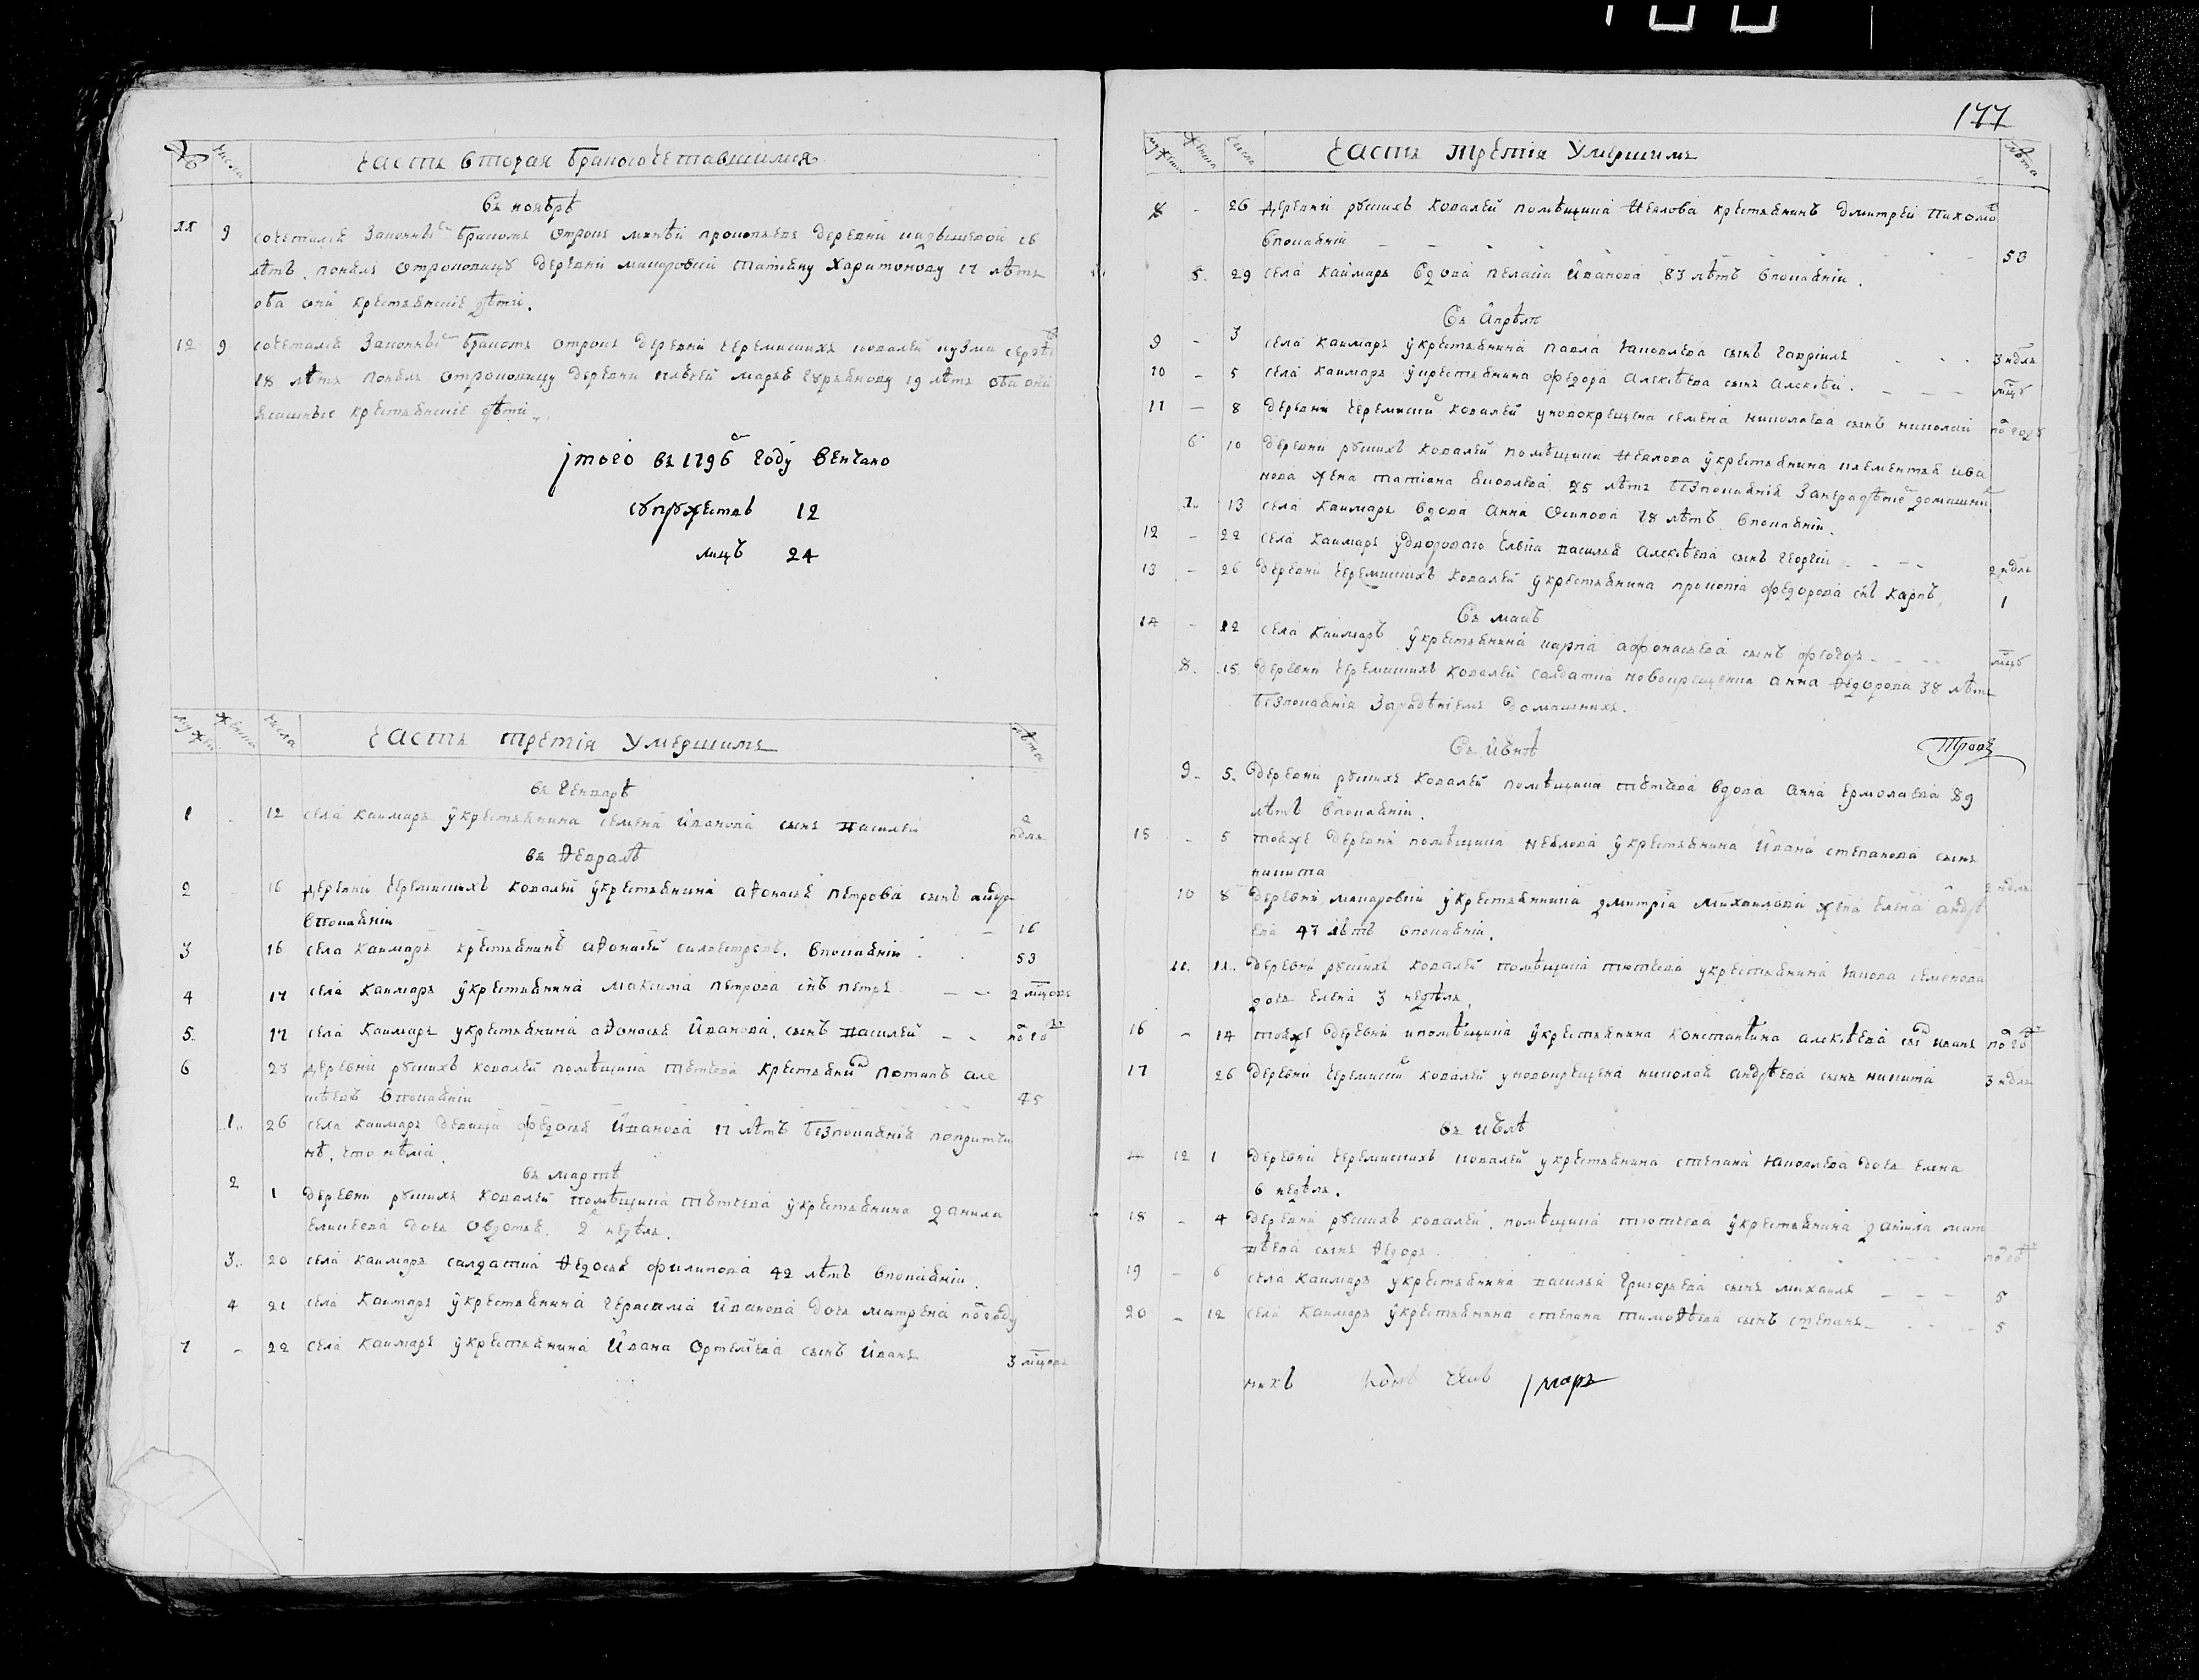 177
числа
часть вторая бракосочетавшимся
въ ноябрѣ
11 9 сочетался законнымъ бракомъ отрокъ деревни 16
лѣтъ понялъ отроковицу деревни макаровки татиану харитонову 17 лѣтъ
оба они крестьянские дѣти.
12 9 сочетался законнымъ бракомъ отрокъ деревни черемиских ковалей кузма
18 лѣтъ понялъ отроковицу деревни марью гурьянову 19 лѣтъ оба они
ясашные крестьянские дѣти
итого въ 1796м году венчано
супружествъ 12
лицъ 24
мужеск женска числа часть третiя умершимъ лѣта
въ генварѣ
1 - 12 села каимаръ у крестьянина семена иванова сынъ василей 2 ндль
въ ѳевралѣ
2 - 16 деревни черемискихъ ковалей у крестьянина аѳонасья петрова сынъ
впокаянiи 16
3 16 села каимаръ крестьянинъ аѳонасей силвестровъ. впокаянiи 53
4 17 села каимаръ у крестьянина максима петрова снъ петръ 2 мцовъ
5 17 села каимаръ у крестьянина аѳонасья иванова. сынъ василей по го
6 23 деревни рускихъ ковалей помѣщика тютчева крестьянинъ потапъ але
ѣевъ впокаянiи 45
1 26 села каимаръ девица федосья иванова 17 лѣтъ безпокаянiя попричи
нѣ, что нѣма
въ мартѣ
2 1 деревни рускихъ ковалей помѣщика тютчева у крестьянина данила
елисеева дочь овдотья. 2 недѣль.
3 20 села каимаръ салдатка ѳедосья филипова 42 лѣтъ впокаянiи.
4 21 села каимаръ у крестьянина герасима иванова дочь матрена погоду
7 - 22 села каимаръ у крестьянина ивана ортемьева сынъ иванъ 3 мцовъ
мужеск женска числа часть третiя умершимъ лѣта
8 - 26 деревни рускихъ ковалей помѣщика неялова крестьянинъ дмитрей пахомо
впокаянiи 53
5 29 села каимаръ вдова пелагiа иванова 83 лѣтъ впокаянiи.
въ апрѣлѣ
9 - 3 села каимаръ у крестьянина павла яковлева сынъ гаврiилъ 3 ндль
10 - 5 села каимаръ у крестьянина федора алексѣева сынъ алексѣй. мцъ
11 - 8 деревни черемиских ковалей уновокрещена семена николаева сынъ николай погоду
6 10 деревни рускихъ ковалей помѣщика неялова у крестьянина клементья ива
нова жена татiана яковлева 25 лѣтъ безпокаянiя занерадѣнiе домашних
7 13 села каимаръ вдова анна осипова 78 лѣтъ впокаянiи.
12 - 22 села каимаръ удворового василья алексѣева сынъ георгiй 2 ндль
13 - 26 деревни черемискихъ ковалей у крестьянина прокопiа федорова снъ карпъ 1
въ маiѣ
14 - 12 села каимаръ у крестьянина карпа афонасьева сынъ федоръ мцъ
8 15 деревни черемискихъ ковалей салдатка новокрещенка анна ѳедорова 38 лѣтъ
безпокаянiя домашнихъ.
въ iюнѣ
9 5 деревни рускихъ ковалей помѣщика тютчева вдова анна ермолаева 89
лѣтъ впокаянiи.
15 - 5 тояже деревни помѣщика неялова у крестьянина ивана степанова сынъ
никита 2 ндль
10 8 деревни макаровки у крестьянина дмитрiа михаилова жена елена андрѣ
ева 47 лѣтъ впокаянiи.
11 11 деревни рускихъ ковалей помѣщика тютчева у крестьянина якова семенова
дочь елена 3 недѣль.
16 - 14 тояже деревни ипомѣщика у крестьянина константина алексѣева снъ иванъ по го
17 26 деревни черемиских ковалей уновокрещена николая андрѣева сынъ никита 3 ндль
въ iюлѣ
12 1 деревни черемискихъ ковалей у крестьянина степана яковлева дочь елена
6 недѣль.
18 - 4 деревни рускихъ ковалей. помѣщика тютчева у крестьянина данiила мат
вѣева сынъ ѳедоръ по го
19 - 6 села каимаръ у крестьянина василья григорьева сынъ михаилъ 5
20 - 12 села каимаръ у крестьянина степана тимоѳѣева сынъ степанъ 5